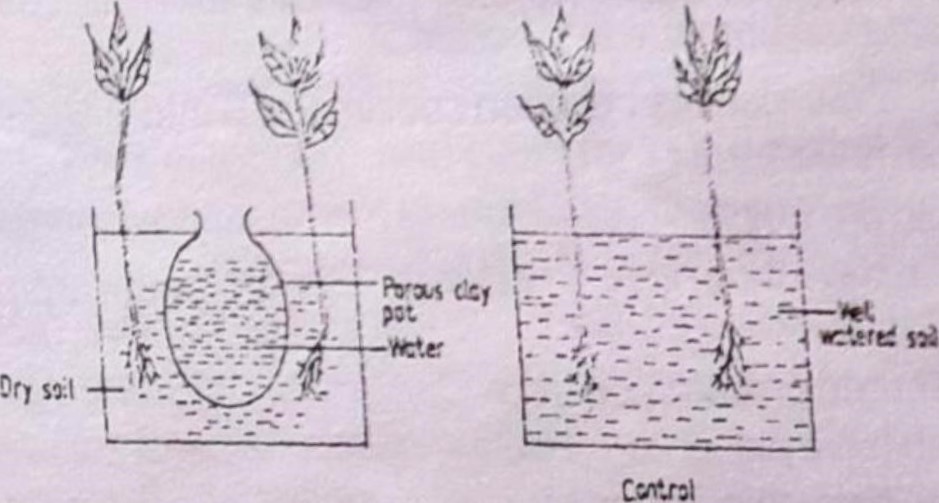 Porous clay
pot
Water
Dry soil
Wet
watered soil
Control